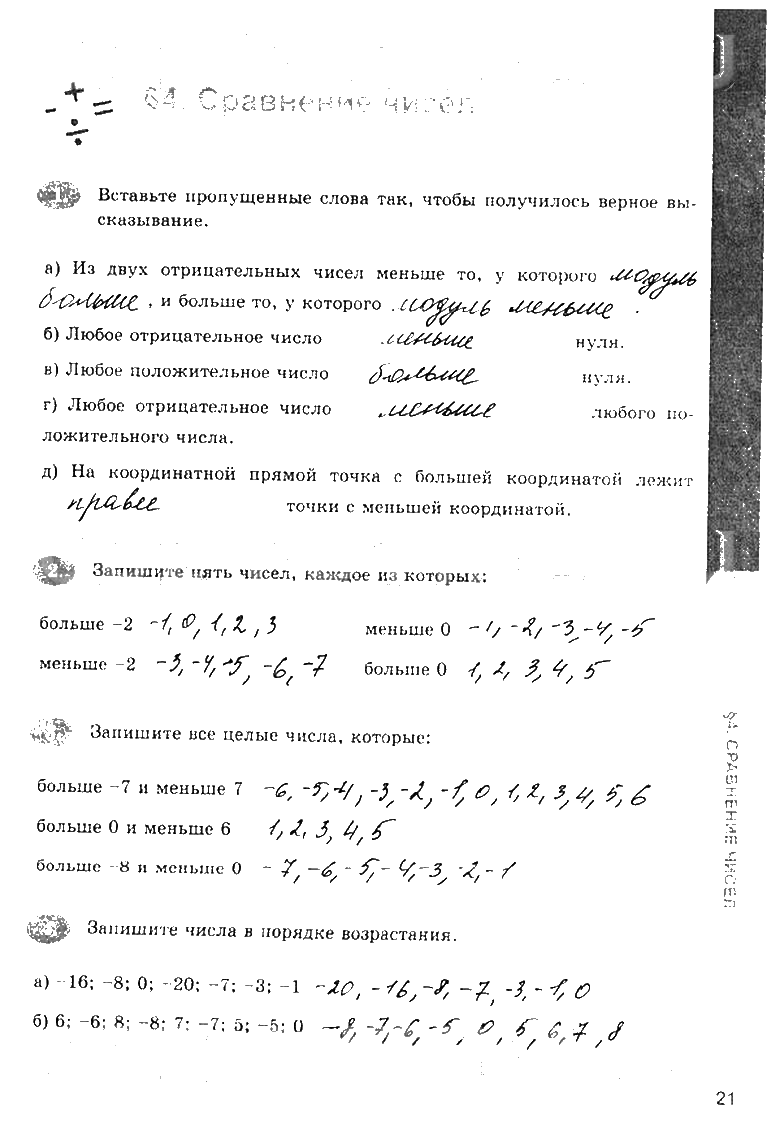 - + ÷ =
§4. Сравнение чисел
1. Вставьте пропущенные слова так, чтобы получилось верное вы-
сказывание.
а) Из двух отрицательных чисел меньше то, у которого модуль
больше, и больше то, у которого модуль меньше.
б) Любое отрицательное число меньше нуля.
в) Любое положительное число больше нуля.
г) Любое отрицательное число меньше любого по-
ложительного числа.
д) На координатной прямой точка с большей координатой лежит
правее точки с меньшей координатой.
2. Запишите пять чисел, каждое из которых:
больше -2 -1, 0, 1, 2, 3 меньше 0 -1, -2, -3, -4, -5
меньше -2 -3, -4, -5, -6, -7 больше 0 1, 2, 3, 4, 5
Запишите все целые числа, которые:
больше -7 и меньше 7 -6, -5, -4, -3, -2, -1, 0, 1, 2, 3, 4, 5, 6
больше 0 и меньше 6 1, 2, 3, 4, 5
больше -8 и меньше 0 -7, -6, -5, -4, -3, -2, -1
Запишите числа в порядке возрастания.
а) -16; -8; 0; -20; -7; -3; -1 -20, -16, -8, -7, -3, -1, 0
б) 6; -6; 8; -8; 7; -7; 5; -5; 0 -8, -7, -6, -5, 0, 5, 6, 7, 8
§4. СРАВНЕНИЕ ЧИСЕЛ
21